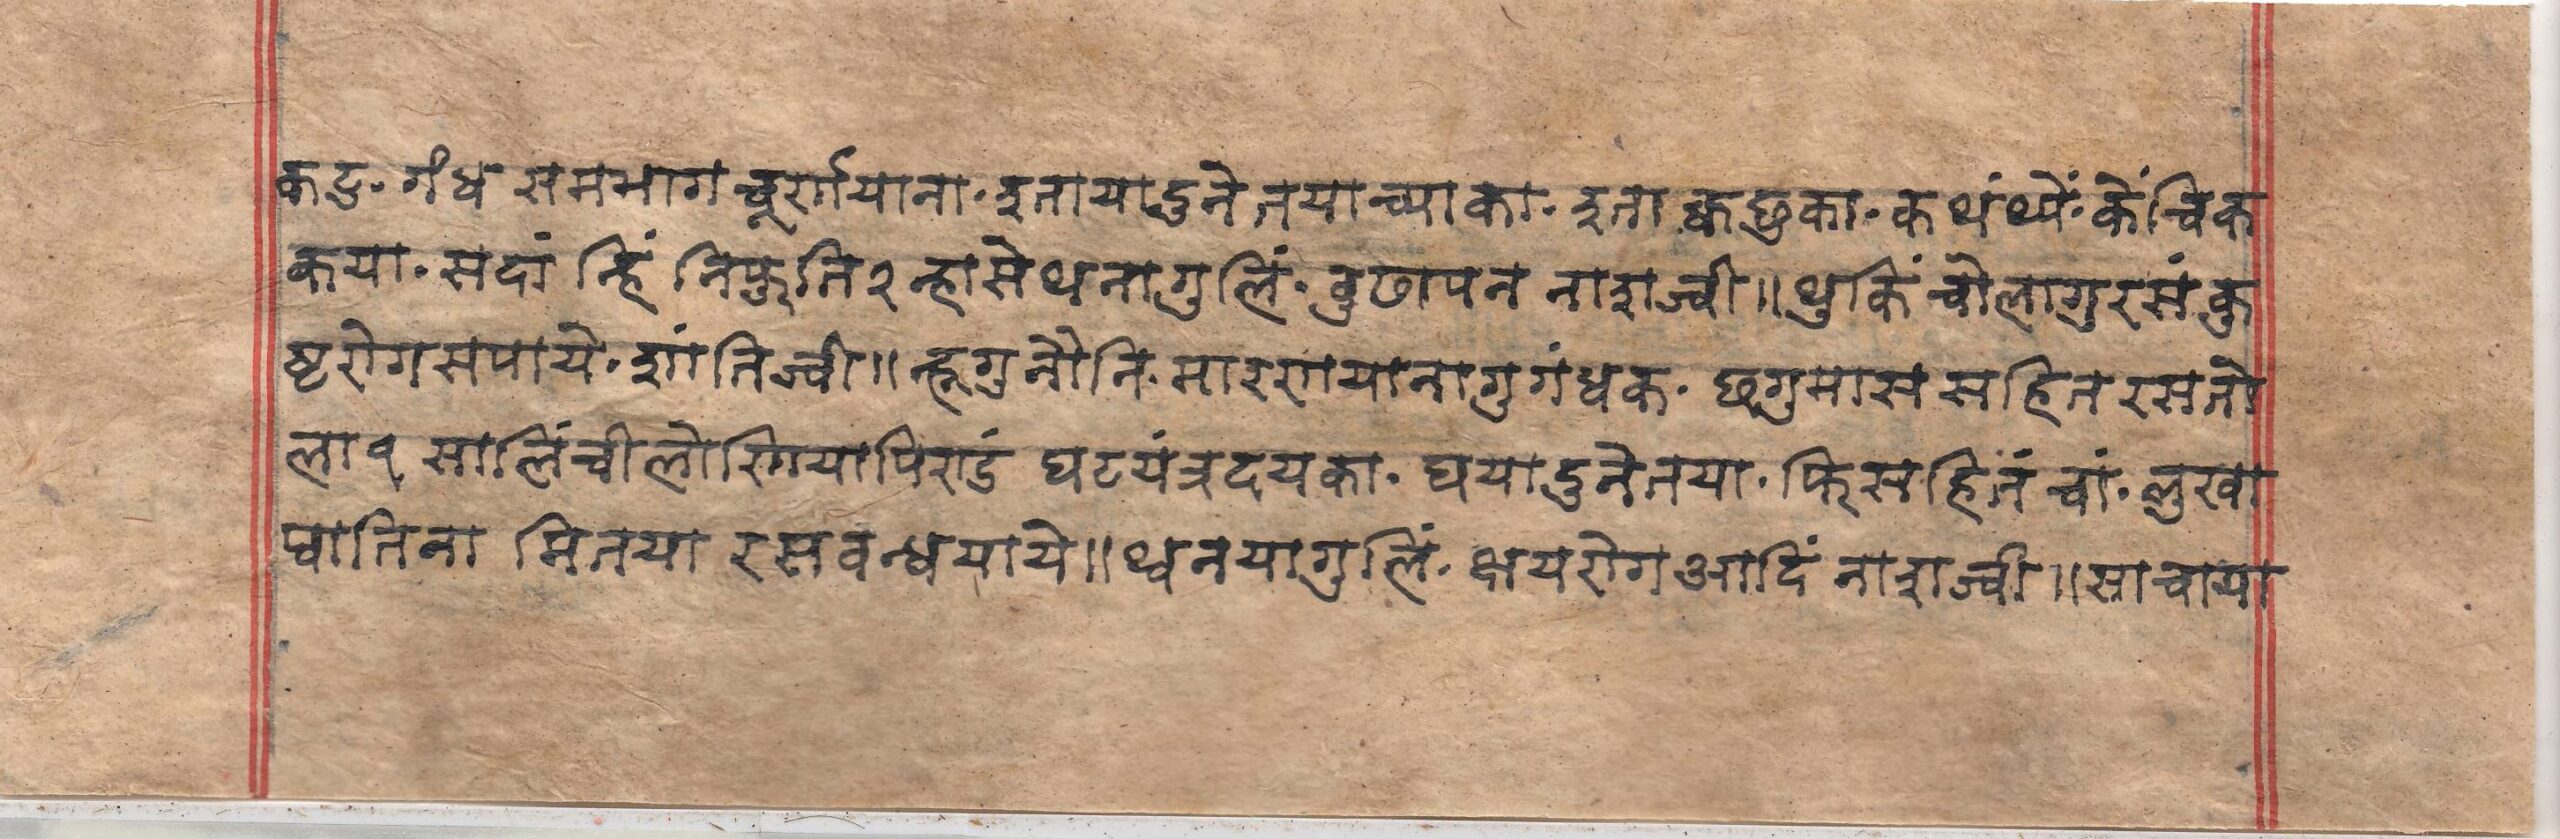 कटु· गंध समभाग चूर्णयाना· इताया दुने तया च्याका· इता क्व छुका· कथं थ्यें· केंचिक
कया· सदां न्हिं निफुति२ न्हासे थनागुलिं· वुढापन नाशज्वी॥ थुकिं चोलागुरसं कु
ष्टरोगसपाये· शांतिज्वी॥ न्हगुनौनि· मारणयानागु गंधक· छगुमास सहित रसतो
ला १ सालिंचीलोस्गियापिण्डं घटयंत्रदयका· घयादुने तया· फिसहितं चां· लुखा
ष्वातिना मितया रसवन्धयाये॥ थ्वनयागुलिं· क्षयरोगआदिं नाशज्वी॥ साचाया